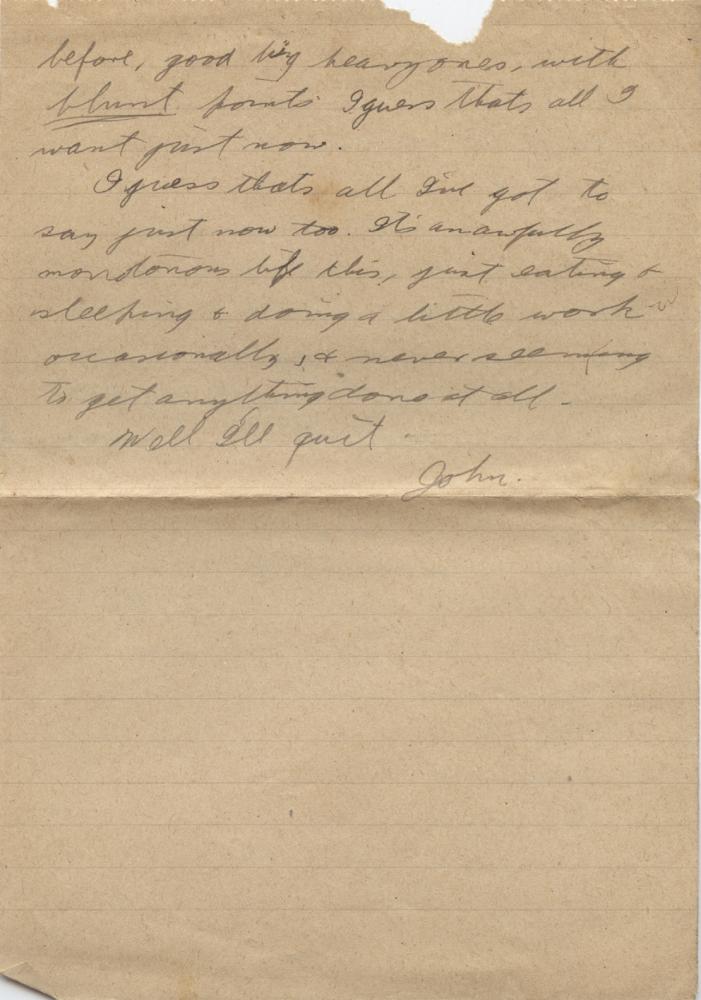 before, good big heavy ones, with
blunt points I guess thats all I
want just now.
I guess thats all I've got to
say just now too. It's an awfully
monotonous life this, just eating &
sleeping & doing a little work
occasionally, & never seeming
to get anything done at all.
Well I'll quit.
John.